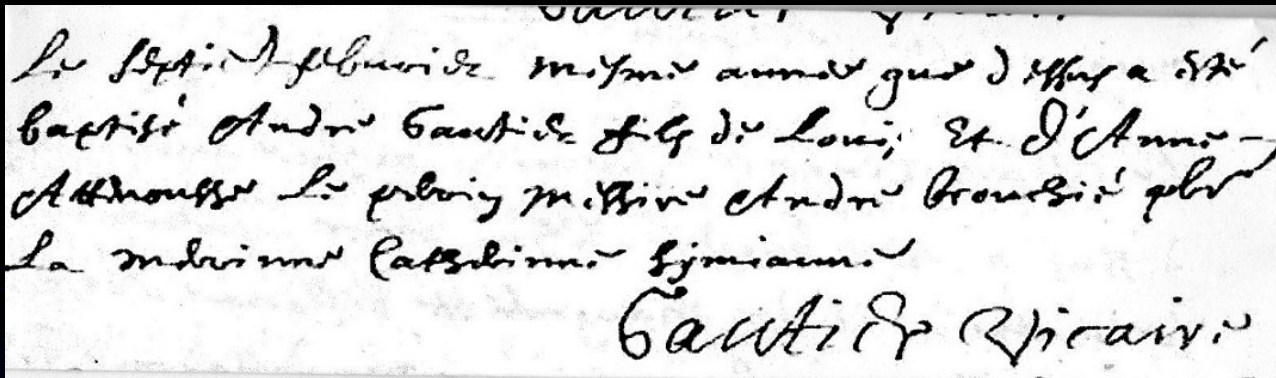 Gautier Vicaire
Le septie febvrier mesme année que dessus a esté
baptisé André Gautier fils de Louis Et d'Anne
Le perrin Messire André brouchié pbre
La merrinne Catherinne Simianne
Gautier Vicaire